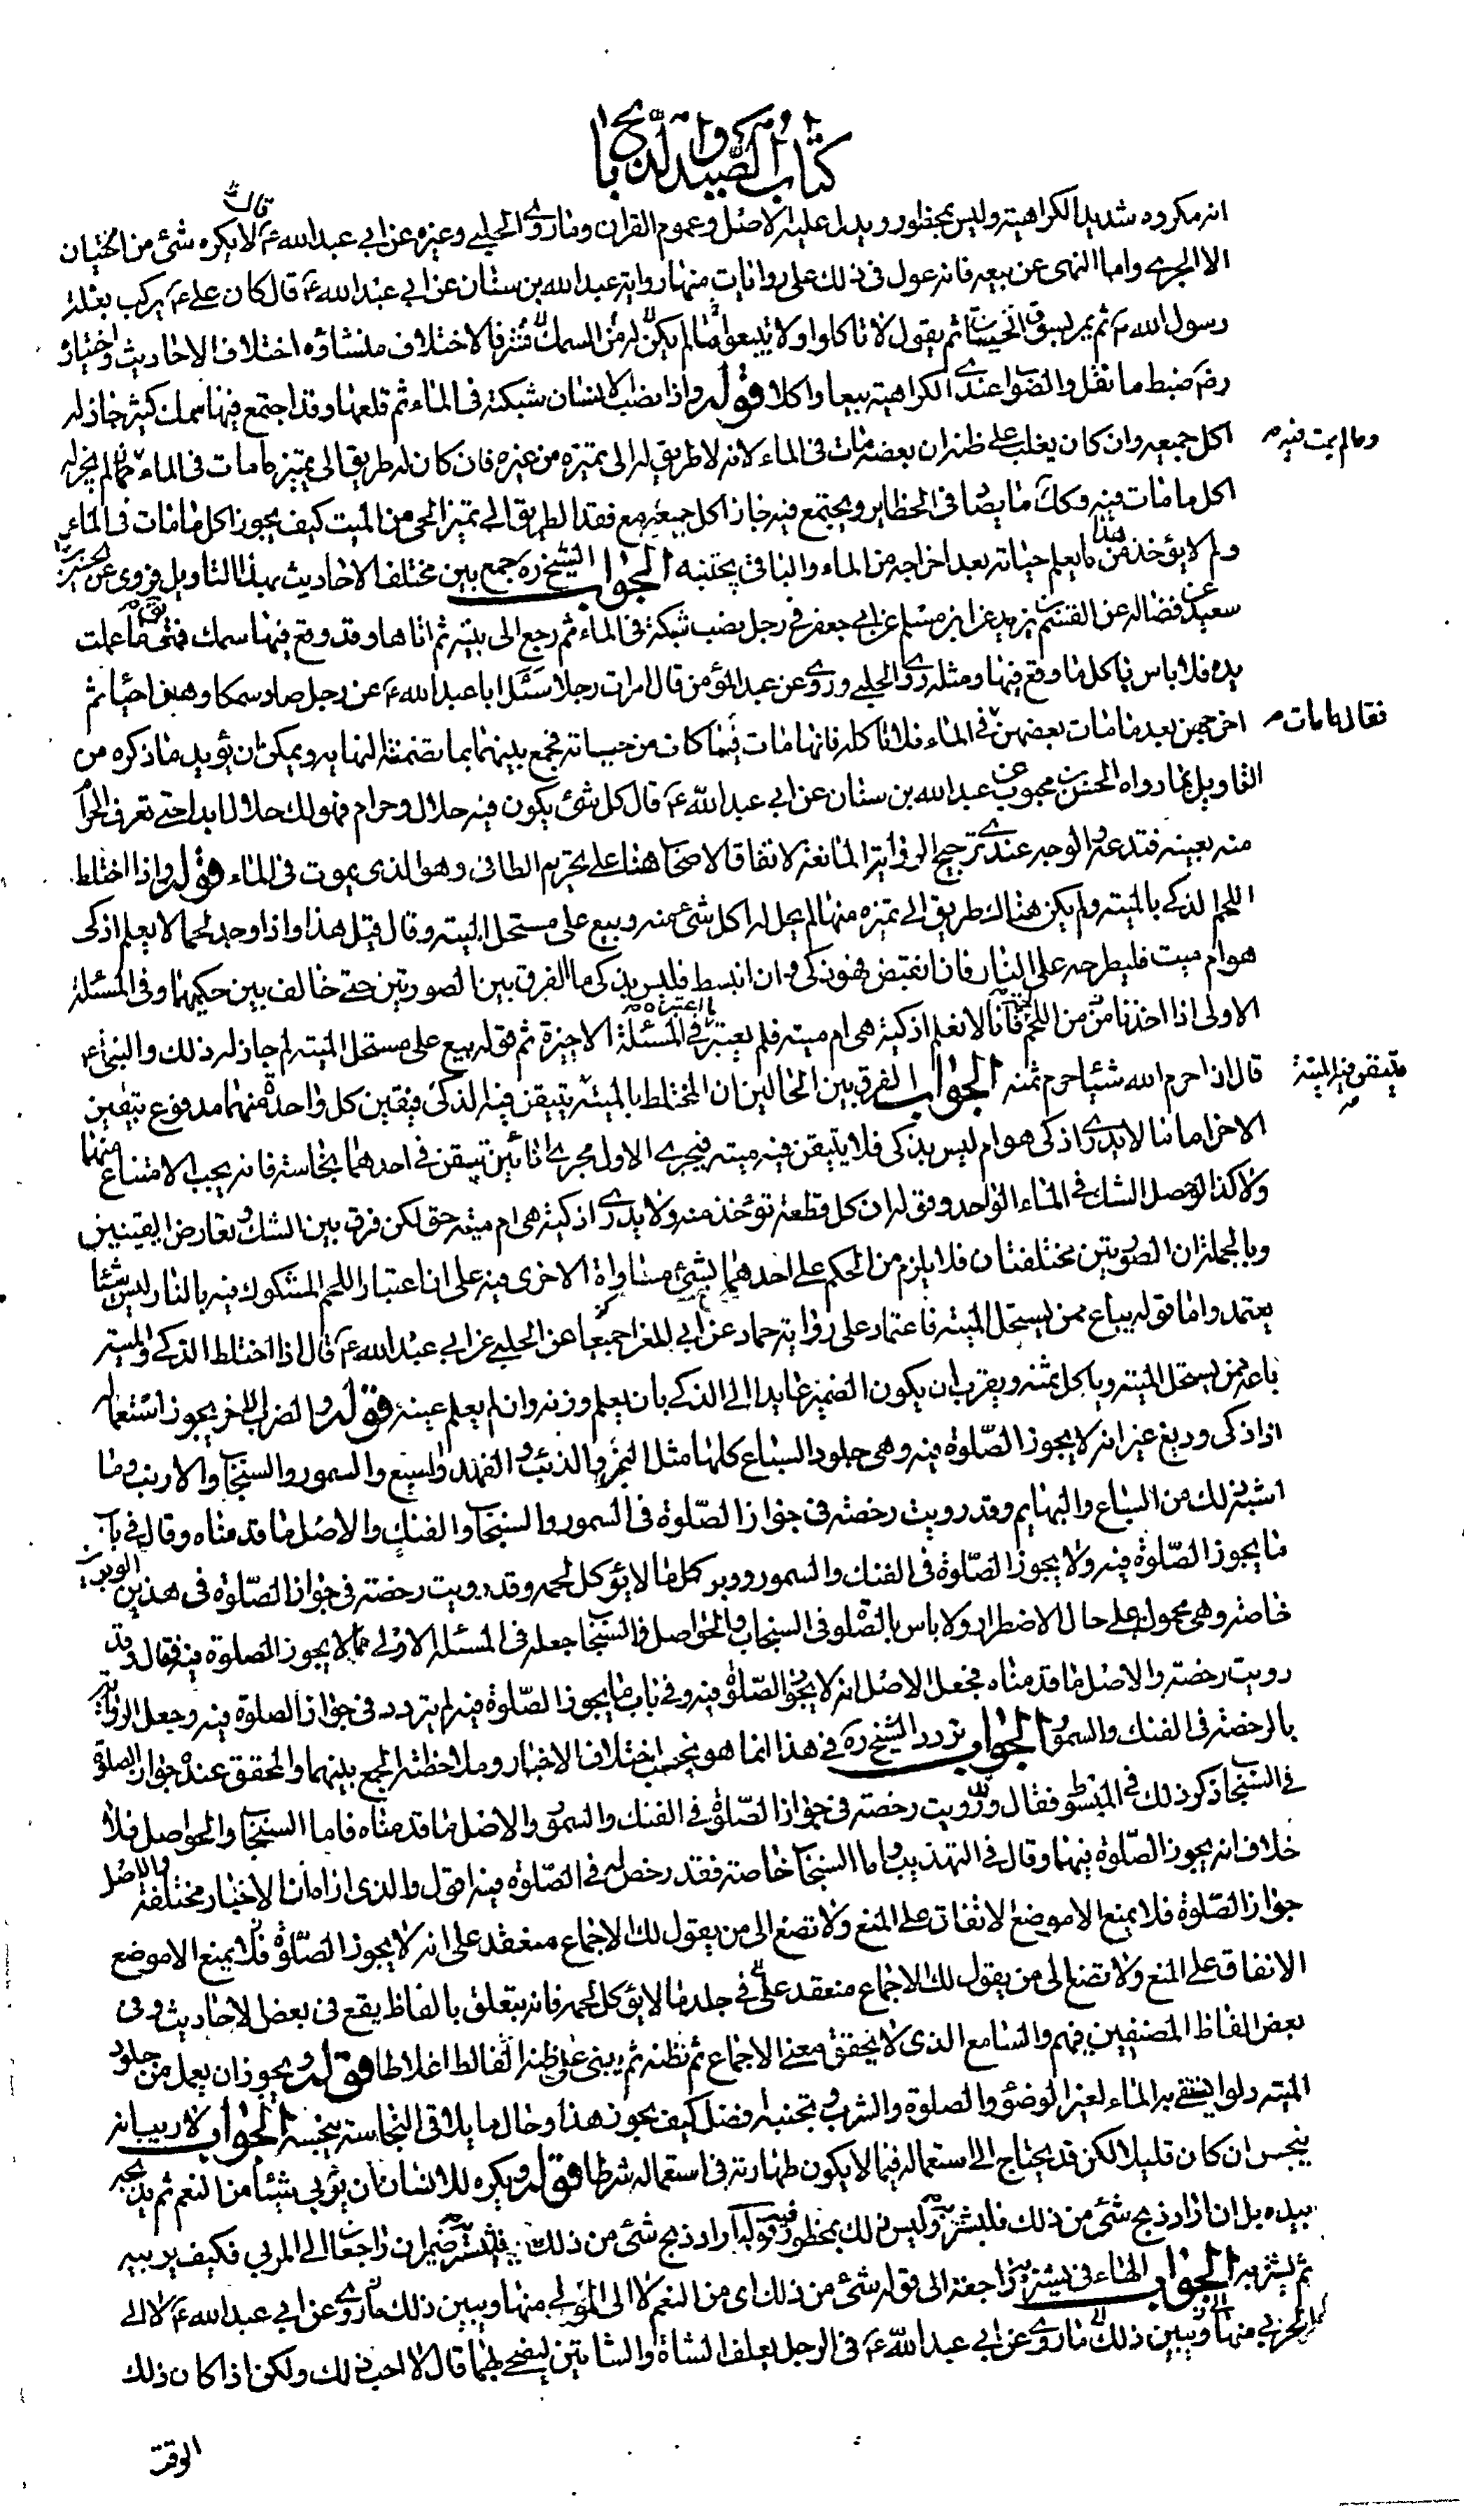 كتاب الصيد والذبايح
انه مكروه شديد الكراهية وليس بمحظور ويدل عليه الاصل وعموم القران وما روى الحلبي وغيره عن ابي عبد الله ع قال لا يكره شئ من الحيتان
الا الجرى واما النهى عن بيعه فانه عول فى ذلك على روايات منها رواية عبد الله بن سنان عن ابي عبد الله ع قال كان علي ع يركب بغلة
رسول الله ص ثم يمر بسوق الحيتان ثم يقول لا تاكلوا ولا تبيعوا ما لم يكن له من السمك قشر فالاختلاف منشاؤه اختلاف الاحاديث واختيار
رض ضبط ما نقل والصواب عندى الكراهية بيعا واكلا قوله واذا نصب الانسان شبكة فى الماء ثم قلعها وقد اجتمع فيها سمك كثير جاز له
اكل جميعه وان كان يغلب على ظنه ان بعضه مات فى الماء لانه لا طريق له الى تميزه من غيره فان كان له طريق الى تميز ما مات فى الماء مما لم يجز له
وما لم يمت فيه
اكل ما مات فيه وكك ما يصاد فى الحظاير ويجتمع فيه جاز اكل جميعه مع فقد الطريق الى تميز الحى من الميت كيف يجوز اكل ما مات فى الماء
ولم لا يؤخذ من هذا ما يعلم حياته بعد اخراجه من الماء والباقى يجتنبه الجواب الشيخ ره جمع بين مختلف الاحاديث بهذا التاويل فروى عن الحسين بن
سعيد عن فضاله عن القسم بن بريد عن ابن مسلم عن ابي جعفر ع فى رجل نصب شبكة فى الماء ثم رجع الى بيته ثم اتاها وقد وقع فيها سمك فقال ما عملت
يده فلا باس باكل ما وقع فيها ومثله روى الحلبي وروى عن عبد المؤمن قال امرت رجلا سئل ابا عبد الله ع عن رجل صاد سمكا وهن احياء ثم
اخرجهن بعد ما مات بعضهن فى الماء فلا تاكله فانها مات فيما كان من حياته فجمع بينهما بما تضمنته النهايه ويمكن ان يؤيد ما ذكره من
فقال ما مات
التاويل بما رواه الحسن بن محبوب عن عبد الله بن سنان عن ابي عبد الله ع قال كل شئ يكون فيه حلال وحرام فهو لك حلال ابدا حتى تعرف الحرام
منه بعينه فتدعه والوجه عندى ترجيح الرواية المانعة لاتفاق الاصحاب هنا على تحريم الطافى وهو الذى يموت فى الماء قوله واذا اختلط
اللحم الذكي بالميته ولم يكن هناك طريق الى تميزه منها لم يحل له اكل شئ منه وبيع على مستحل الميته وقال قبل هذا واذا وجد لحما لا يعلم اذكى
هو ام ميت فليطرحه على النار فان انقبض فهو ذكى وان انبسط فليس بذكى ما الفرق بين الصورتين حتى خالف بين حكيمهما وفى المسئلة
الاولى اذا اخذنا من اللحم فانا لا نعلم اذكية هى ام ميته فلم يعتبر فى المسئلة ما اعتبره الاخيرة ثم قوله بيع على مستحل الميته لم جاز له ذلك والنبى ص
قال اذا حرم الله شيئا حرم ثمنه الجواب الفرق بين الحالين ان المختلط بالميته تيقن فيه الذكى فيقين كل واحدة منهما مدفوع بيقين
متيقن فيه الميتة
الاخر اما ما لا يدرى اذكى هو ام ليس بذكى فلا يتيقن فيه ميته فيجرى الاول مجرى انائين تيقن فى احدهما نجاسة فانه يجب الامتناع منهما
ولا كذا لو حصل الشك فى الماء الواحد وقوله ان كل قطعة توخذ منه ولا يدرى اذكية هى ام ميته حق لكن فرق بين الشك وتعارض اليقينين
وبالجملة ان الصورتين مختلفتان فلا يلزم من الحكم على احدهما بشئ مساواة الاخرى فيه على ان اعتبار اللحم المشكوك فيه بالنار ليس شيئا
يعتمد واما قوله يباع ممن يستحل الميته فاعتماد على رواية حماد عن ابي المغرا جميعا عن الحلبي عن ابي عبد الله ع قال اذا اختلط الذكي والميته
باعه ممن يستحل الميته وياكل ثمنه ويقرب ان يكون الضمير عايدا الى الذكي بان يعلم وزنه وان لم يعلم عينه قوله والضرب الاخر يجوز استعماله
اذا ذكى ودبغ غير انه لا يجوز الصلوة فيه وهى جلود السباع كلها مثل النمر والذئب والفهد والسبع والسمور والسنجاب والارنب وما
اشبه ذلك من السباع والبهايم وقد رويت رخصة فى جواز الصلوة فى السمور والسنجاب والفنك والاصل ما قدمناه وقال فى باب
ما يجوز الصلوة فيه ولا يجوز الصلوة فى الفنك والسمور ووبر كل ما لا يؤكل لحمه وقد رويت رخصة فى جواز الصلوة فى هذين الوبرين
خاصة وهى محمولة على حال الاضطرار ولا باس بالصلوة فى السنجاب والحواصل فالسنجاب جعله فى المسئلة الاولى مما لا يجوز الصلوة فيه فقال وقد
رويت رخصة والاصل ما قدمناه فجعل الاصل انه لا يجوز الصلوة فيه وفى باب ما يجوز الصلوة فيه لم يتردد فى جواز الصلوة فيه وجعل الرواية
بالرخصة فى الفنك والسمور الجواب تردد الشيخ ره فى هذا انما هو بحسب اختلاف الاخبار وملاحظة الجمع بينهما والمحقق عنده جواز الصلوة
فى السنجاب ذكر ذلك فى المبسوط فقال ورويت رخصة فى جواز الصلوة فى الفنك والسمور والاصل ما قدمناه فاما السنجاب والحواصل فلا
خلاف انه يجوز الصلوة فيهما وقال فى التهذيب واما السنجاب خاصة فقد رخص له فى الصلوة فيه اقول والذى اراه ان الاخبار مختلفة والاصل
جواز الصلوة فلا يمنع الا موضع الاتفاق على المنع ولا تصغ الى من يقول لك الاجماع منعقد على انه لا يجوز الصلوة فلا يمنع الا موضع
الاتفاق على المنع ولا تصغ الى من يقول لك الاجماع منعقد على فى جلد ما لا يؤكل لحمه فانه يتعلق بالفاظ يقع فى بعض الاحاديث وفى
بعض الفاظ المصنفين فيهم والسامع الذى لا يحقق معنى الاجماع ثم نظنه ثم يبنى على ظنه الغالط اغلاطا قوله ويجوز ان يعمل من جلود
الميته دلوا يستقى به الماء لغير الوضوء والصلوة والشرب وتجنبه افضل كيف يجوز هذا وحال ما يلاقى النجاسة نجسة الجواب لا ريب انه
ينجس ان كان قليلا لكن قد يحتاج الى استعماله فيما لا يكون طهارته فى استعماله شرطا قوله ويكره للانسان ان يربى شيئا من النعم ثم يذبحه
بيده بل ان اراد ذبح شئ من ذلك فليشتره وليس ذلك بمحظور قوله اراد ذبح شئ من ذلك فليشتره ضميران راجعان الى المربى فكيف يربيه
ثم يشتريه الجواب الهاء فى يشتريه راجعة الى قوله شئ من ذلك اى من النعم لا الى المربى منها ويبين ذلك ما روى عن ابي عبد الله ع لا الى
المربى منها ويبين ذلك ما روى عن ابي عبد الله ع فى الرجل يعلف الشاة والشاتين ليضحى بهما قال لا احب ذلك ولكن اذا كان ذلك
الوقت